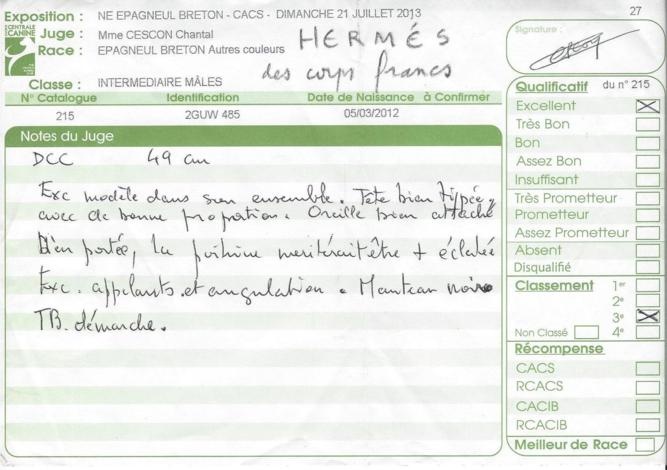 27
Exposition : NE EPAGNEUL BRETON - CACS - DIMANCHE 21 JUILLET 2013
CENTRALE CANINE
Juge : Mme CESCON Chantal
HERMÉS
Race : EPAGNEUL BRETON Autres couleurs
des corps francs
Classe : INTERMEDIAIRE MÂLES
N° Catalogue Identification Date de Naissance à Confirmer
215 2GUW 485 05/03/2012
Notes du Juge
DCC 49 cm
Exc modèle dans son ensemble. Tête bien typée,
avec de bonne proportion. Oreille bien attaché
bien portée, la poitrine meriterait être + éclatée
Exc. applombs et angulation. Manteau noir
TB. démarche.
Signature :
Qualificatif du n° 215
Excellent
Très Bon
Bon
Assez Bon
Insuffisant
Très Prometteur
Prometteur
Assez Prometteur
Absent
Disqualifié
Classement 1er
2e
3e
Non Classé 4e
Récompense
CACS
RCACS
CACIB
RCACIB
Meilleur de Race